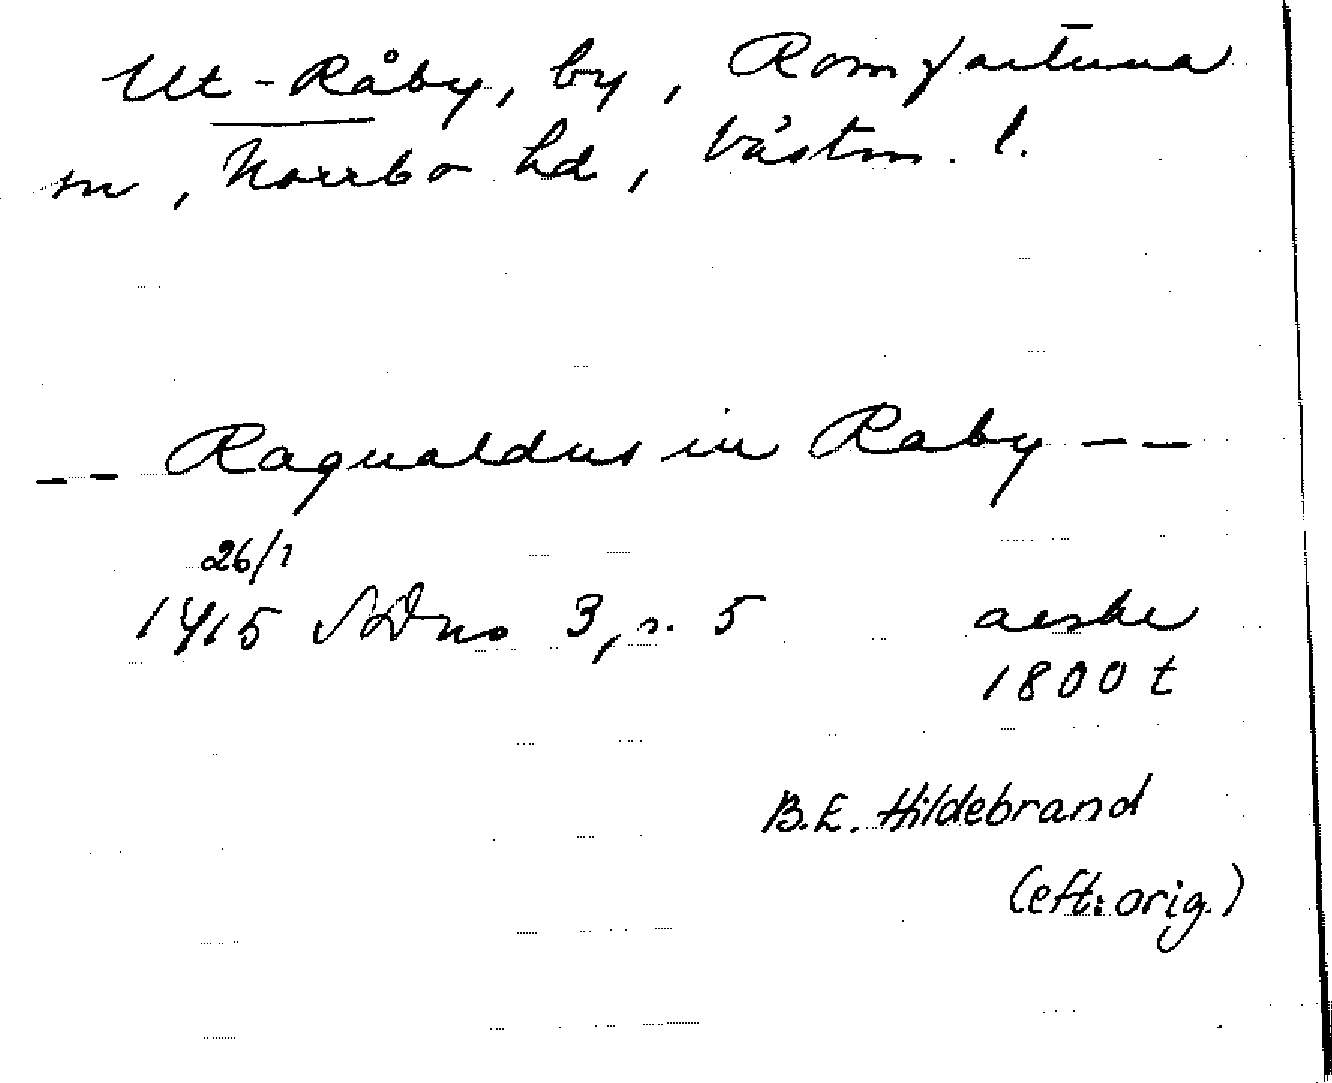 Ut-Råby, by, Romfartuna
sn, Norrbo hd, Västm. l.
-- Ragualdus in Raby --
26/1
1415 SDns 3, s. 5 avskr
1800 t
B.E. Hildebrand
(eft. orig.)